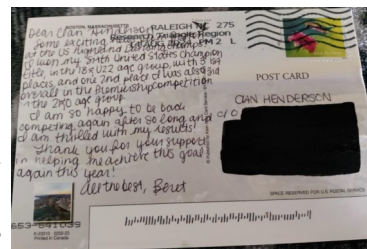 BOSTON, MASSACHUSETTS
Dear Clan Henderson, RALEIGH NC 275
Some exciting Research Triangle Region
at the US Highland Dancing Champs
I won my Smith United States Champion
title, in the 18 & U22 age group, with 3 1st
places, and one 2nd place. I was also 3rd
overall in the Premiership competition
in the 21&O age group.
I am so happy to be back
competing again after so long and
I am thrilled with my results!
Thank you for your support
in helping me achieve this goal
again this year!
All the best, Beret
PM 2 L
POST CARD
CLAN HENDERSON
C/O
SPACE RESERVED FOR U.S. POSTAL SERVICE
Printed in Canada